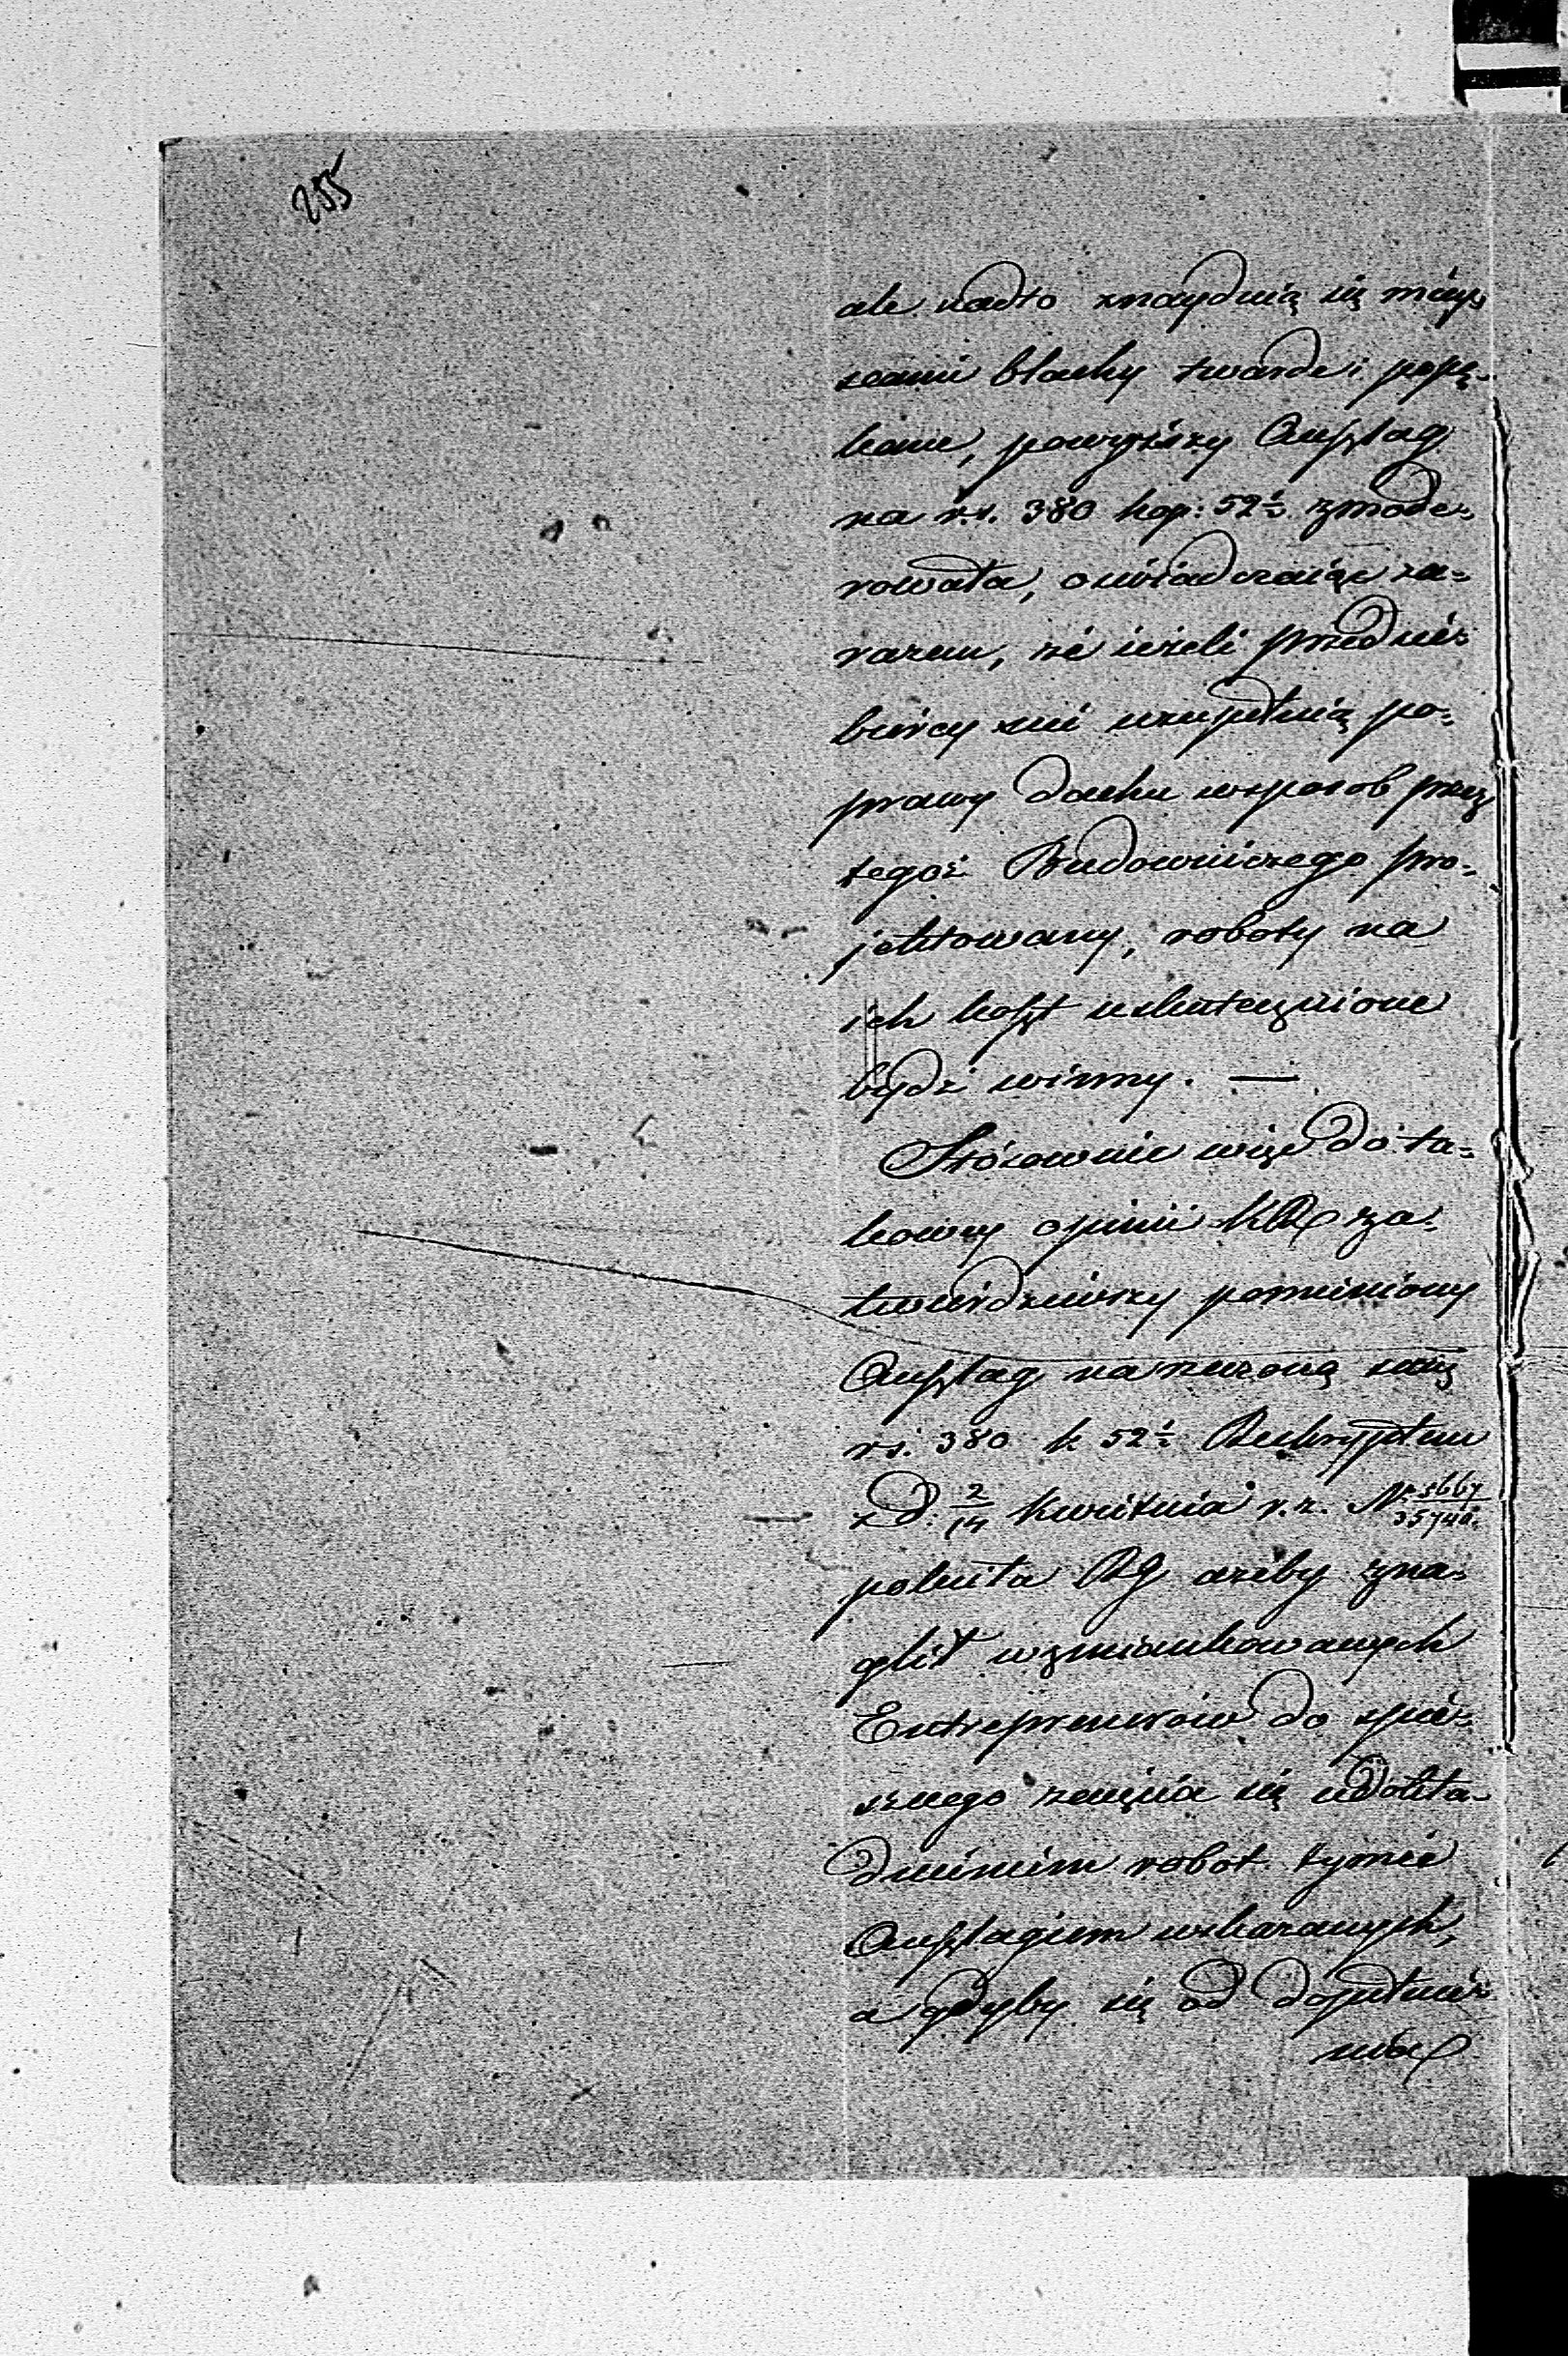 255
ale nadto znayduią się miey,
scami blachy twarde i popę-
kane, powyższy Anszlag
na r.s. 380 kop: 52½ zmode-
rowała, oświadczaiąc za-
razem, że ieżeli przedsię-
biercy nie uzupełnią po-
prawy dachu wsposob przez
tegoż Budowniczego pro-
jektowany, roboty na
ich koszt uskutecznione
bydź winny. —
Stósownie więc do ta-
kowey opinii KR za-
twierdziwszy pomieniony
Anszlag na rzeczoną
rs. 380 k 52½ Reskryptem
z D: 2/14 Kwietnia r. z. Nr
poleciła RG ażeby zna-
glił wzmiankowanych
Entreprenerów do spie-
sznego zaięcia się udokła-
dnieniem robot tymże
Anszlagiem wskazanych,
a gdyby się od dopełnie-
nia